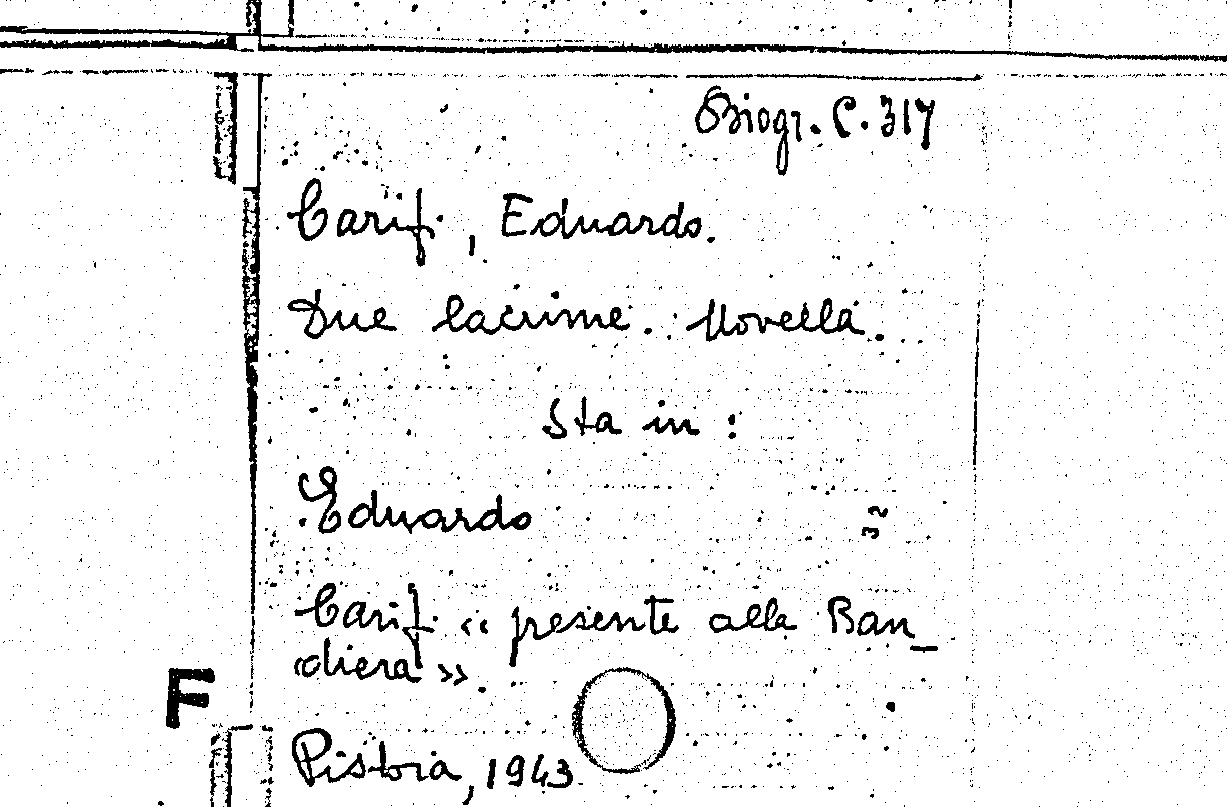 Biogr. C. 317
Carifi, Eduardo.
Due lacrime. Novella.
Sta in:
Eduardo
Carifi « presente alla Ban_
diera ».
F
Pistoia, 1943